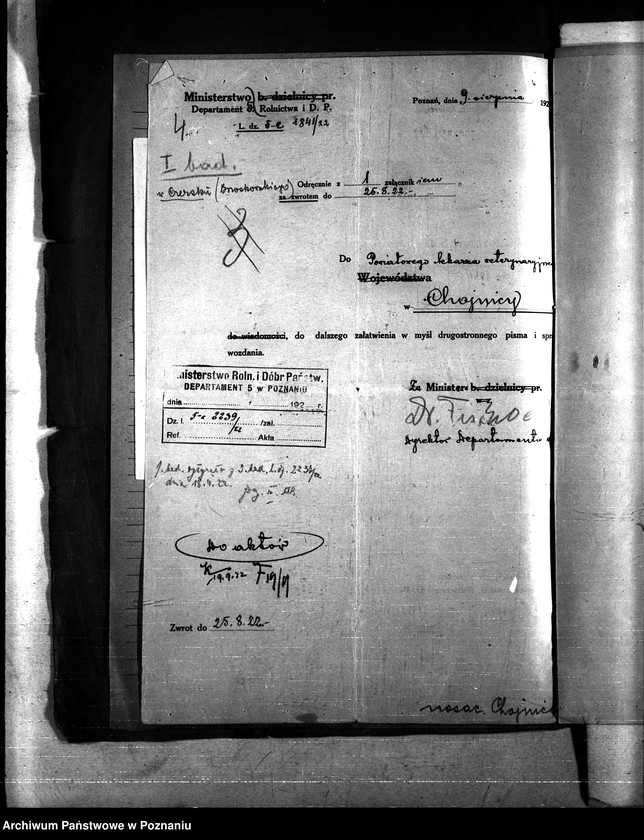 Ministerstwo b. dzielnicy pr.
Departament 5 Rolnictwa i D. P.
Poznań, dnia 9. sierpnia 192
4.
L. dz. 5-c 1841/22
I bad.
w Czersku
Odręcznie z 1 załącznikiem
za zwrotem do 25.8.22.-
Do Powiatowego lekarza weterynaryjne
Województwa
w Chojnicy
do wiadomości, do dalszego załatwienia w myśl drugostronnego pisma i spr
wozdania.
inisterstwo Roln. i Dóbr Państw.
DEPARTAMENT 5 W POZNANIU
dnia 192 r.
Dz. l. 5-c 2239/22 /zal.
Ref. Akta
Za Ministera b. dzielnicy pr.
Dr.
Dyrektor Departamentu
3. bad. L. dz. 2239/22
dnia 18.9.22.
Do aktów
19.9.22 F 19/9
Zwrot do 25.8.22.-
nosac. Chojnice
Archiwum Państwowe w Poznaniu